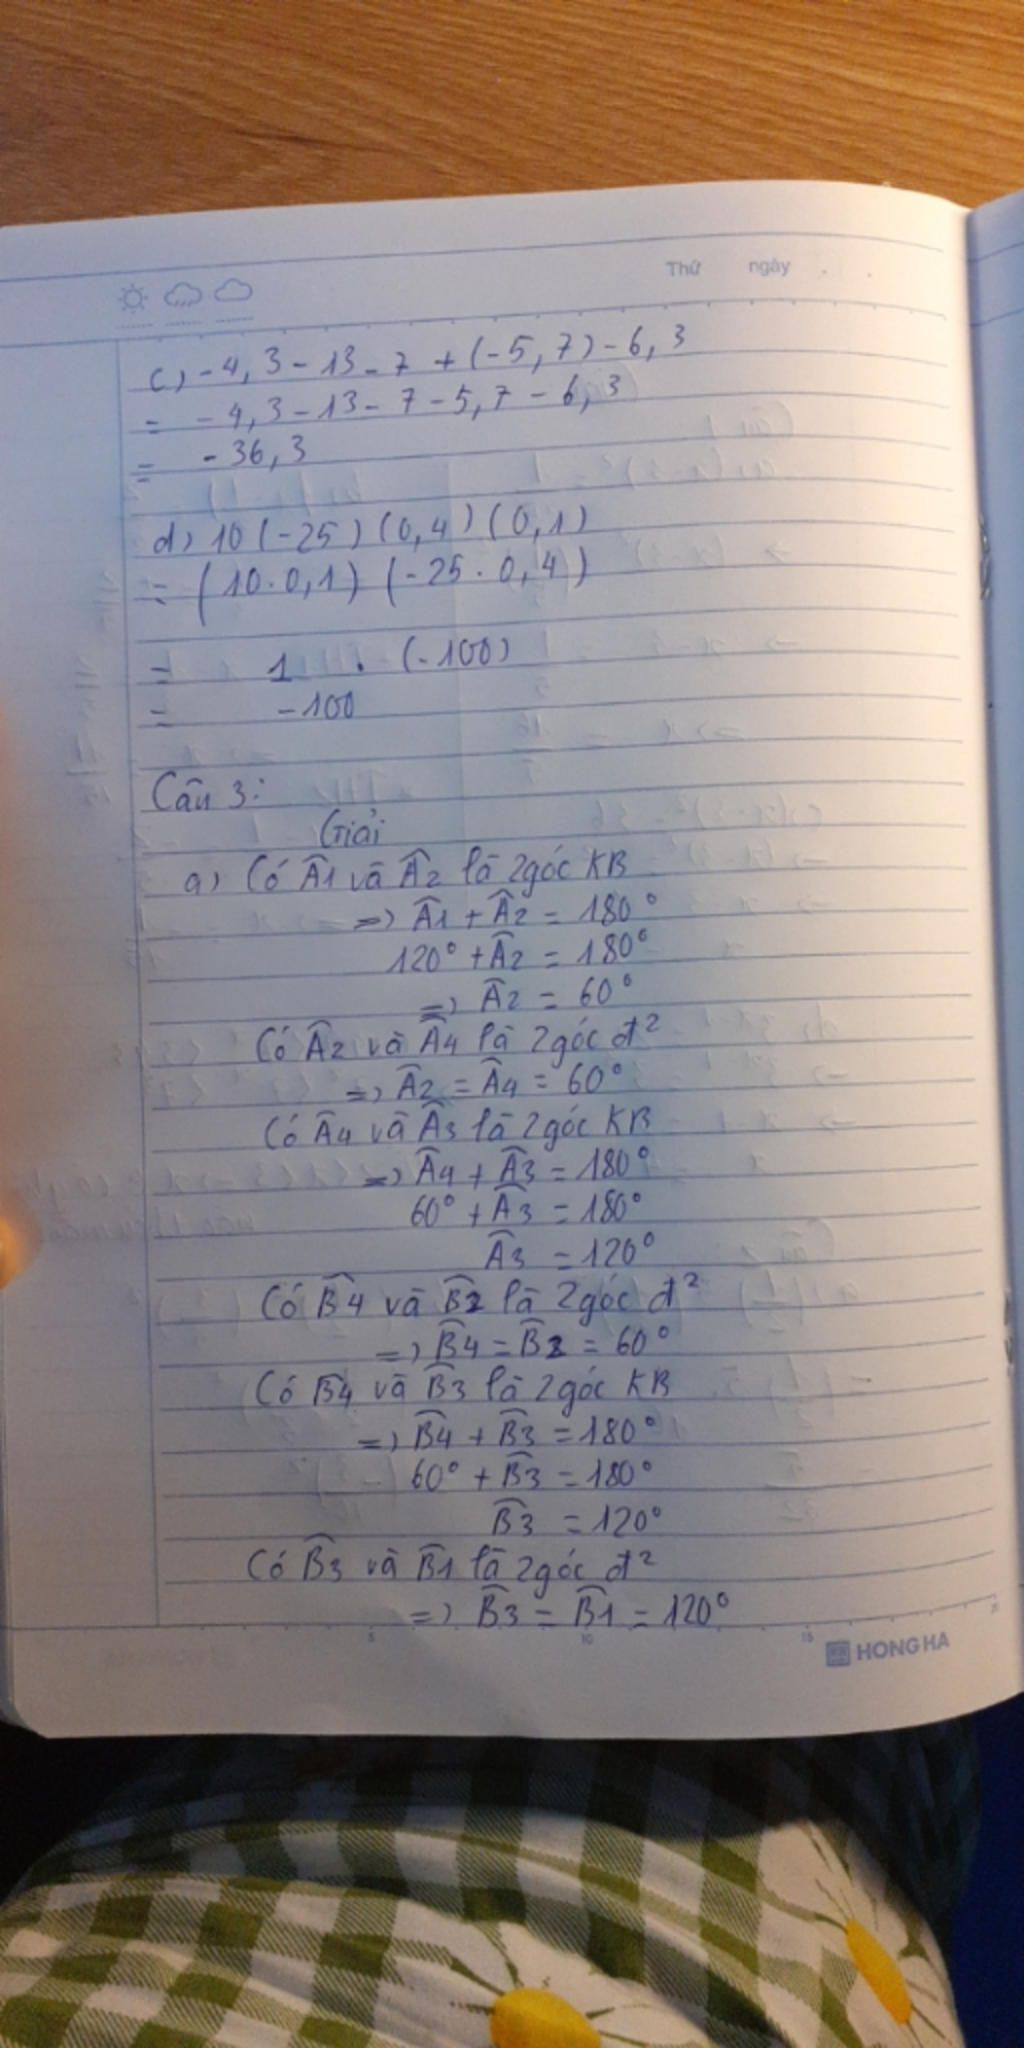 Thứ ngày
c) -4,3 - 13 - 7 + (-5,7) - 6,3
= -4,3 - 13 - 7 - 5,7 - 6,3
= -36,3
d) 10 (-25) (0,4) (0,1)
= (10 . 0,1) (-25 . 0,4)
= 1 . (-100)
= -100
Câu 3:
Giải
a) Có Â1 và Â2 là 2 góc KB
=> Â1 + Â2 = 180°
120° + Â2 = 180°
=> Â2 = 60°
Có Â2 và Â4 là 2 góc đ²
=> Â2 = Â4 = 60°
Có Â4 và Â3 là 2 góc KB
=> Â4 + Â3 = 180°
60° + Â3 = 180°
Â3 = 120°
Có B̂4 và B̂2 là 2 góc đ²
=> B̂4 = B̂2 = 60°
Có B̂4 và B̂3 là 2 góc KB
=> B̂4 + B̂3 = 180°
60° + B̂3 = 180°
B̂3 = 120°
Có B̂3 và B̂1 là 2 góc đ²
=> B̂3 = B̂1 = 120°
5 10 15
HONG HA